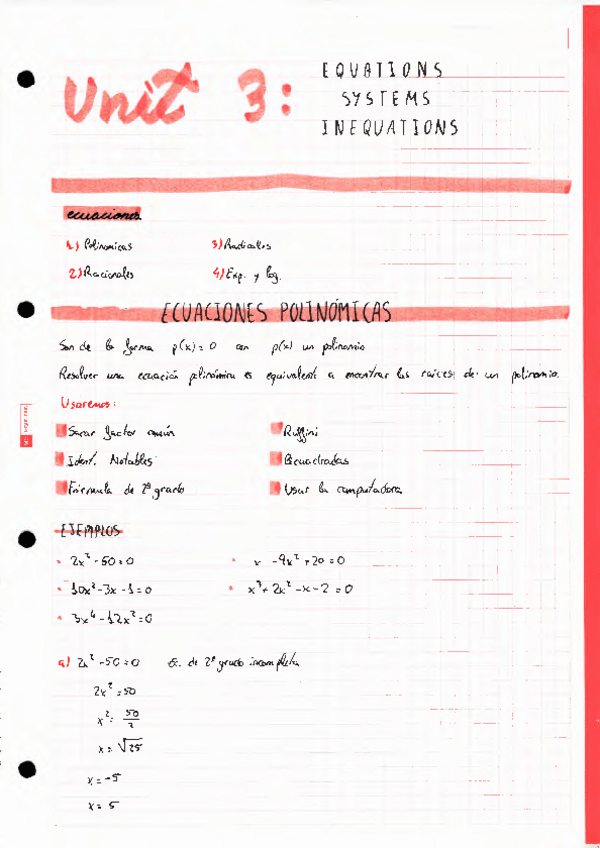 Unit 3:
EQUATIONS
SYSTEMS
INEQUATIONS
ecuaciones
1) Polinomicas
3) Radicales
2) Racionales
4) Exp. y log.
ECUACIONES POLINÓMICAS
Son de la forma p(x) = 0 con p(x) un polinomio
Resolver una ecuación polinómica es equivalente a encontrar las raices de un polinomio.
Usaremos:
Sacar factor común
Ruffini
Ident. Notables
Bicuadradas
Fórmula de 2º grado
Usar la computadora
EJEMPLOS
2x² - 50 = 0
x - 9x² + 20 = 0
10x² - 3x - 1 = 0
x³ + 2x² - x - 2 = 0
3x⁴ - 12x² = 0
a) 2x² - 50 = 0 Ec. de 2º grado incompleta
2x² = 50
x² = 50/2
x = √25
x = -5
x = 5